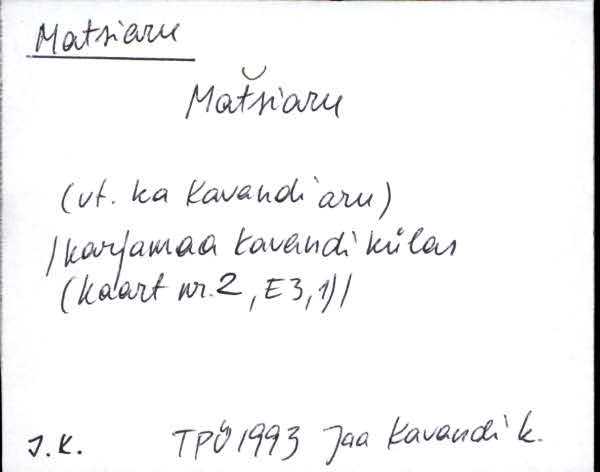 Matsiaru
Mat̆siaru
(vt. ka Kavandi aru)
/karjamaa Kavandi külas
(kaart nr. 2, E3,1)/
J.K. TPÜ 1993 Jaa Kavandi k.